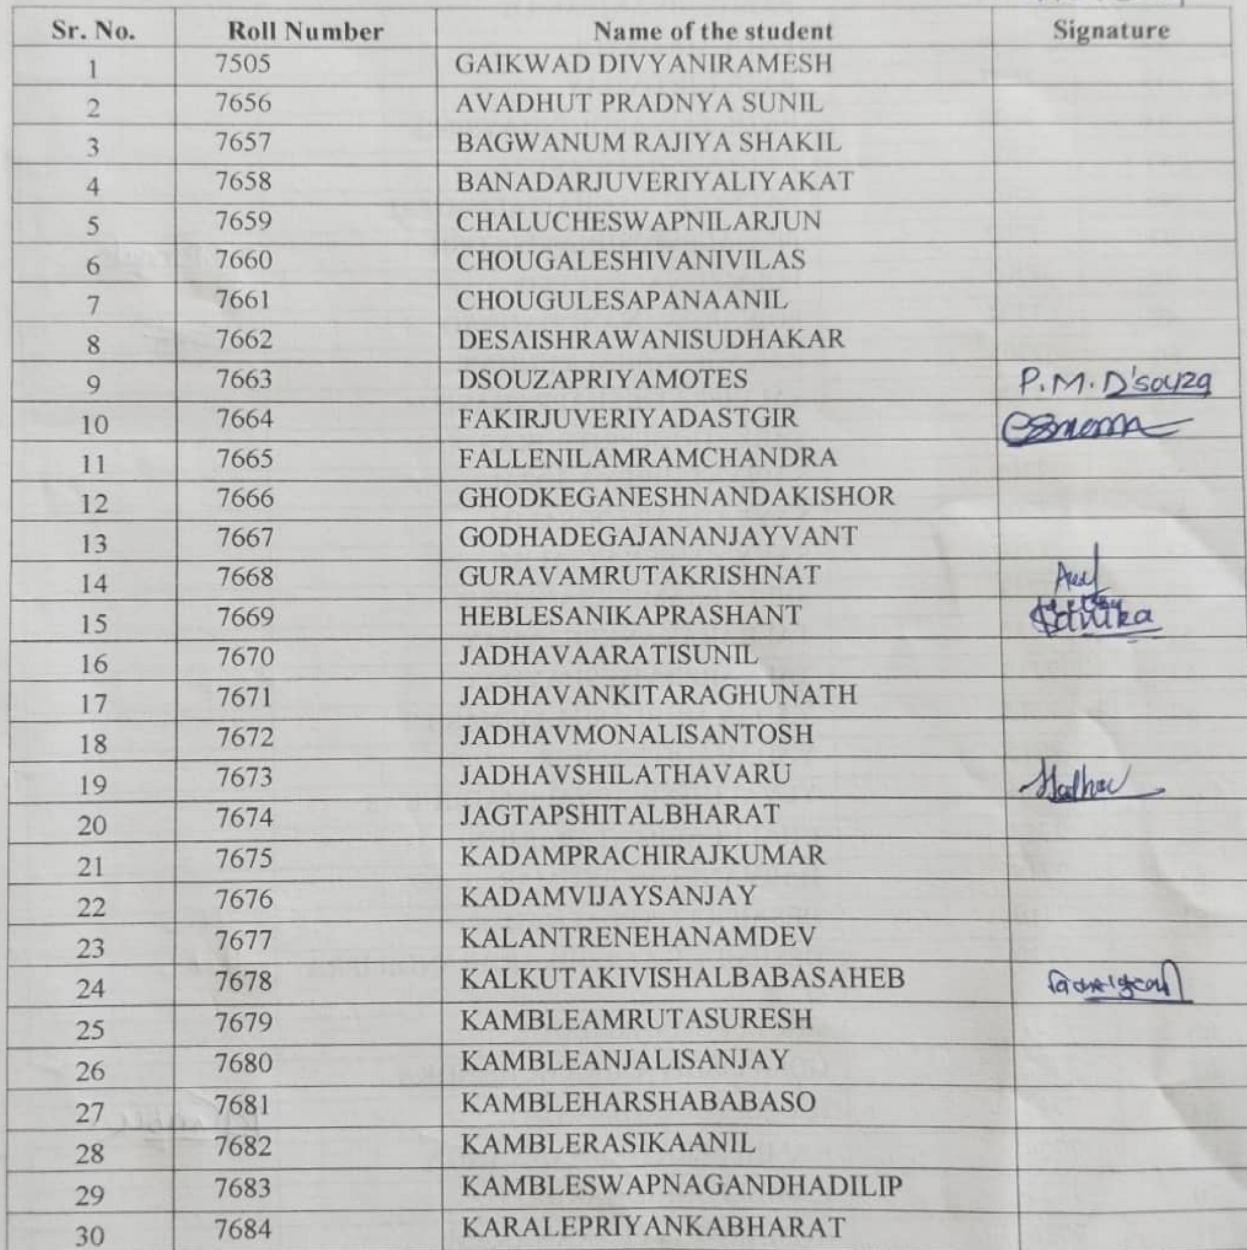 Sr. No. Roll Number Name of the student Signature
1 7505 GAIKWAD DIVYANIRAMESH
2 7656 AVADHUT PRADNYA SUNIL
3 7657 BAGWANUM RAJIYA SHAKIL
4 7658 BANADARJUVERIYALIYAKAT
5 7659 CHALUCHESWAPNILARJUN
6 7660 CHOUGALESHIVANIVILAS
7 7661 CHOUGULESAPANAANIL
8 7662 DESAISHRAWANISUDHAKAR
9 7663 DSOUZAPRIYAMOTES P.M. D'souza
10 7664 FAKIRJUVERIYADASTGIR
11 7665 FALLENILAMRAMCHANDRA
12 7666 GHODKEGANESHNANDAKISHOR
13 7667 GODHADEGAJANANJAYVANT
14 7668 GURAVAMRUTAKRISHNAT
15 7669 HEBLESANIKAPRASHANT Sanika
16 7670 JADHAVAARATISUNIL
17 7671 JADHAVANKITARAGHUNATH
18 7672 JADHAVMONALISANTOSH
19 7673 JADHAVSHILATHAVARU
20 7674 JAGTAPSHITALBHARAT
21 7675 KADAMPRACHIRAJKUMAR
22 7676 KADAMVIJAYSANJAY
23 7677 KALANTRENEHANAMDEV
24 7678 KALKUTAKIVISHALBABASAHEB
25 7679 KAMBLEAMRUTASURESH
26 7680 KAMBLEANJALISANJAY
27 7681 KAMBLEHARSHABABASO
28 7682 KAMBLERASIKAANIL
29 7683 KAMBLESWAPNAGANDHADILIP
30 7684 KARALEPRIYANKABHARAT